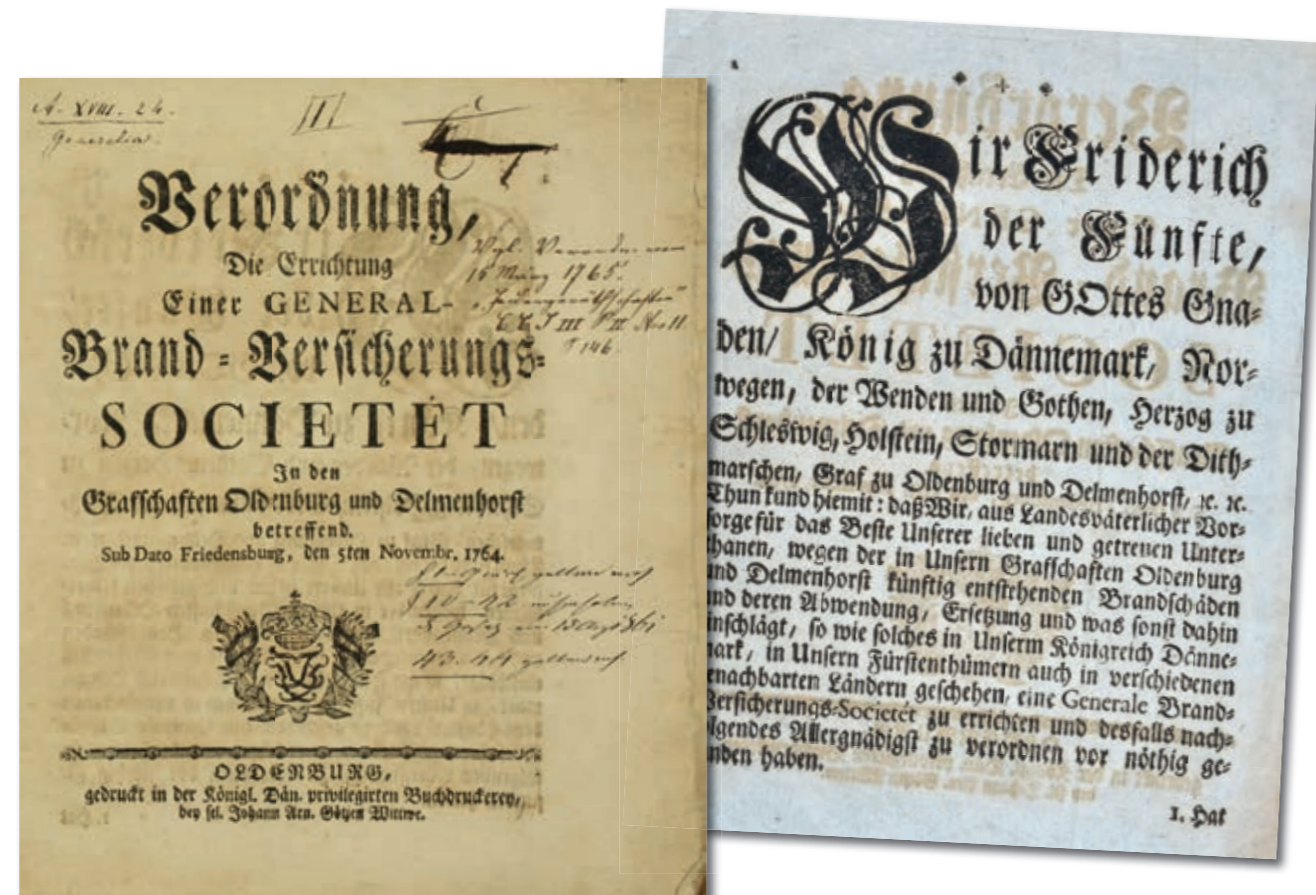 A. XVIII. 24.
Generalia.
III
Verordnung,
Die Errichtung
Einer GENERAL-
Brand-Versicherungs-
SOCIETÉT
In den
Grafschaften Oldenburg und Delmenhorst
betreffend.
Sub Dato Friedensburg, den 5ten Novembr. 1764.
Vgl. Verordn. vom
1765.
III
146
OLDENBURG,
gedruckt in der Königl. Dän. privilegirten Buchdruckerey,
bey sel. Johann Arn. Götzen Wittwe.
Wir Friderich
der Fünfte,
von GOttes Gna-
den/ König zu Dännemark, Nor-
wegen, der Wenden und Gothen, Herzog zu
Schleswig, Holstein, Stormarn und der Dith-
marschen, Graf zu Oldenburg und Delmenhorst, ꝛc. ꝛc.
Thun kund hiemit: daß Wir, aus Landesväterlicher Vor-
orge für das Beste Unserer lieben und getreuen Unter-
hanen, wegen der in Unsern Grafschaften Oldenburg
nd Delmenhorst künftig entstehenden Brandschäden
nd deren Abwendung, Ersetzung und was sonst dahin
inschlägt, so wie solches in Unserm Königreich Dänne-
ark, in Unsern Fürstenthümern auch in verschiedenen
enachbarten Ländern geschehen, eine Generale Brand-
Versicherungs-Societét zu errichten und desfalls nach-
lgendes Allergnädigst zu verordnen vor nöthig ge-
nden haben.
1. Hat